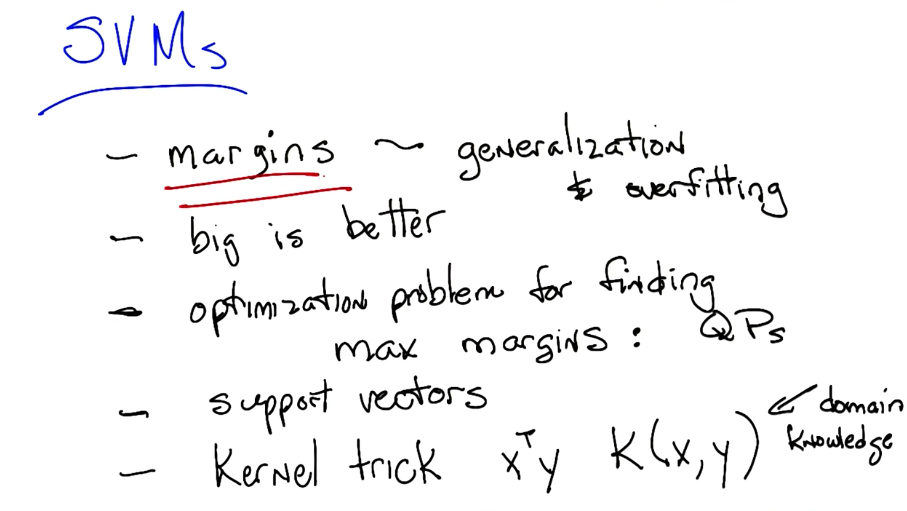 SVMs
- margins ~ generalization
& overfitting
- big is better
- optimization problem for finding
max margins: QPs
- support vectors
- kernel trick xᵀy K(x,y) ← domain
knowledge